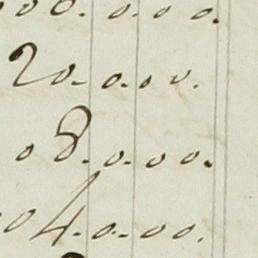 00. 0. 0 0.
20. 0. 0 0.
08. 0. 0 0.
04. 0. 0 0.